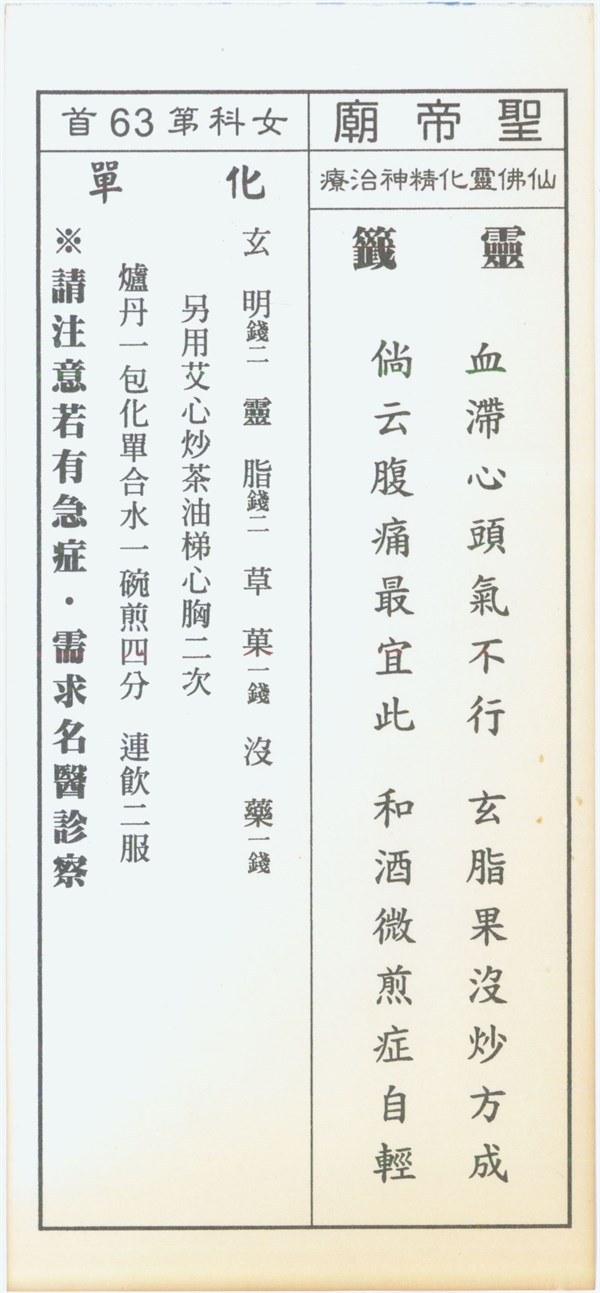 聖帝廟
仙佛靈化精神治療
靈籤
血滯心頭氣不行 玄脂果沒炒方成
倘云腹痛最宜此 和酒微煎症自輕
女科第63首
化單
玄明錢二 靈脂錢二 草菓一錢 沒藥一錢
另用艾心炒茶油梯心胸二次
爐丹一包化單合水一碗煎四分 連飲二服
※請注意若有急症．需求名醫診察